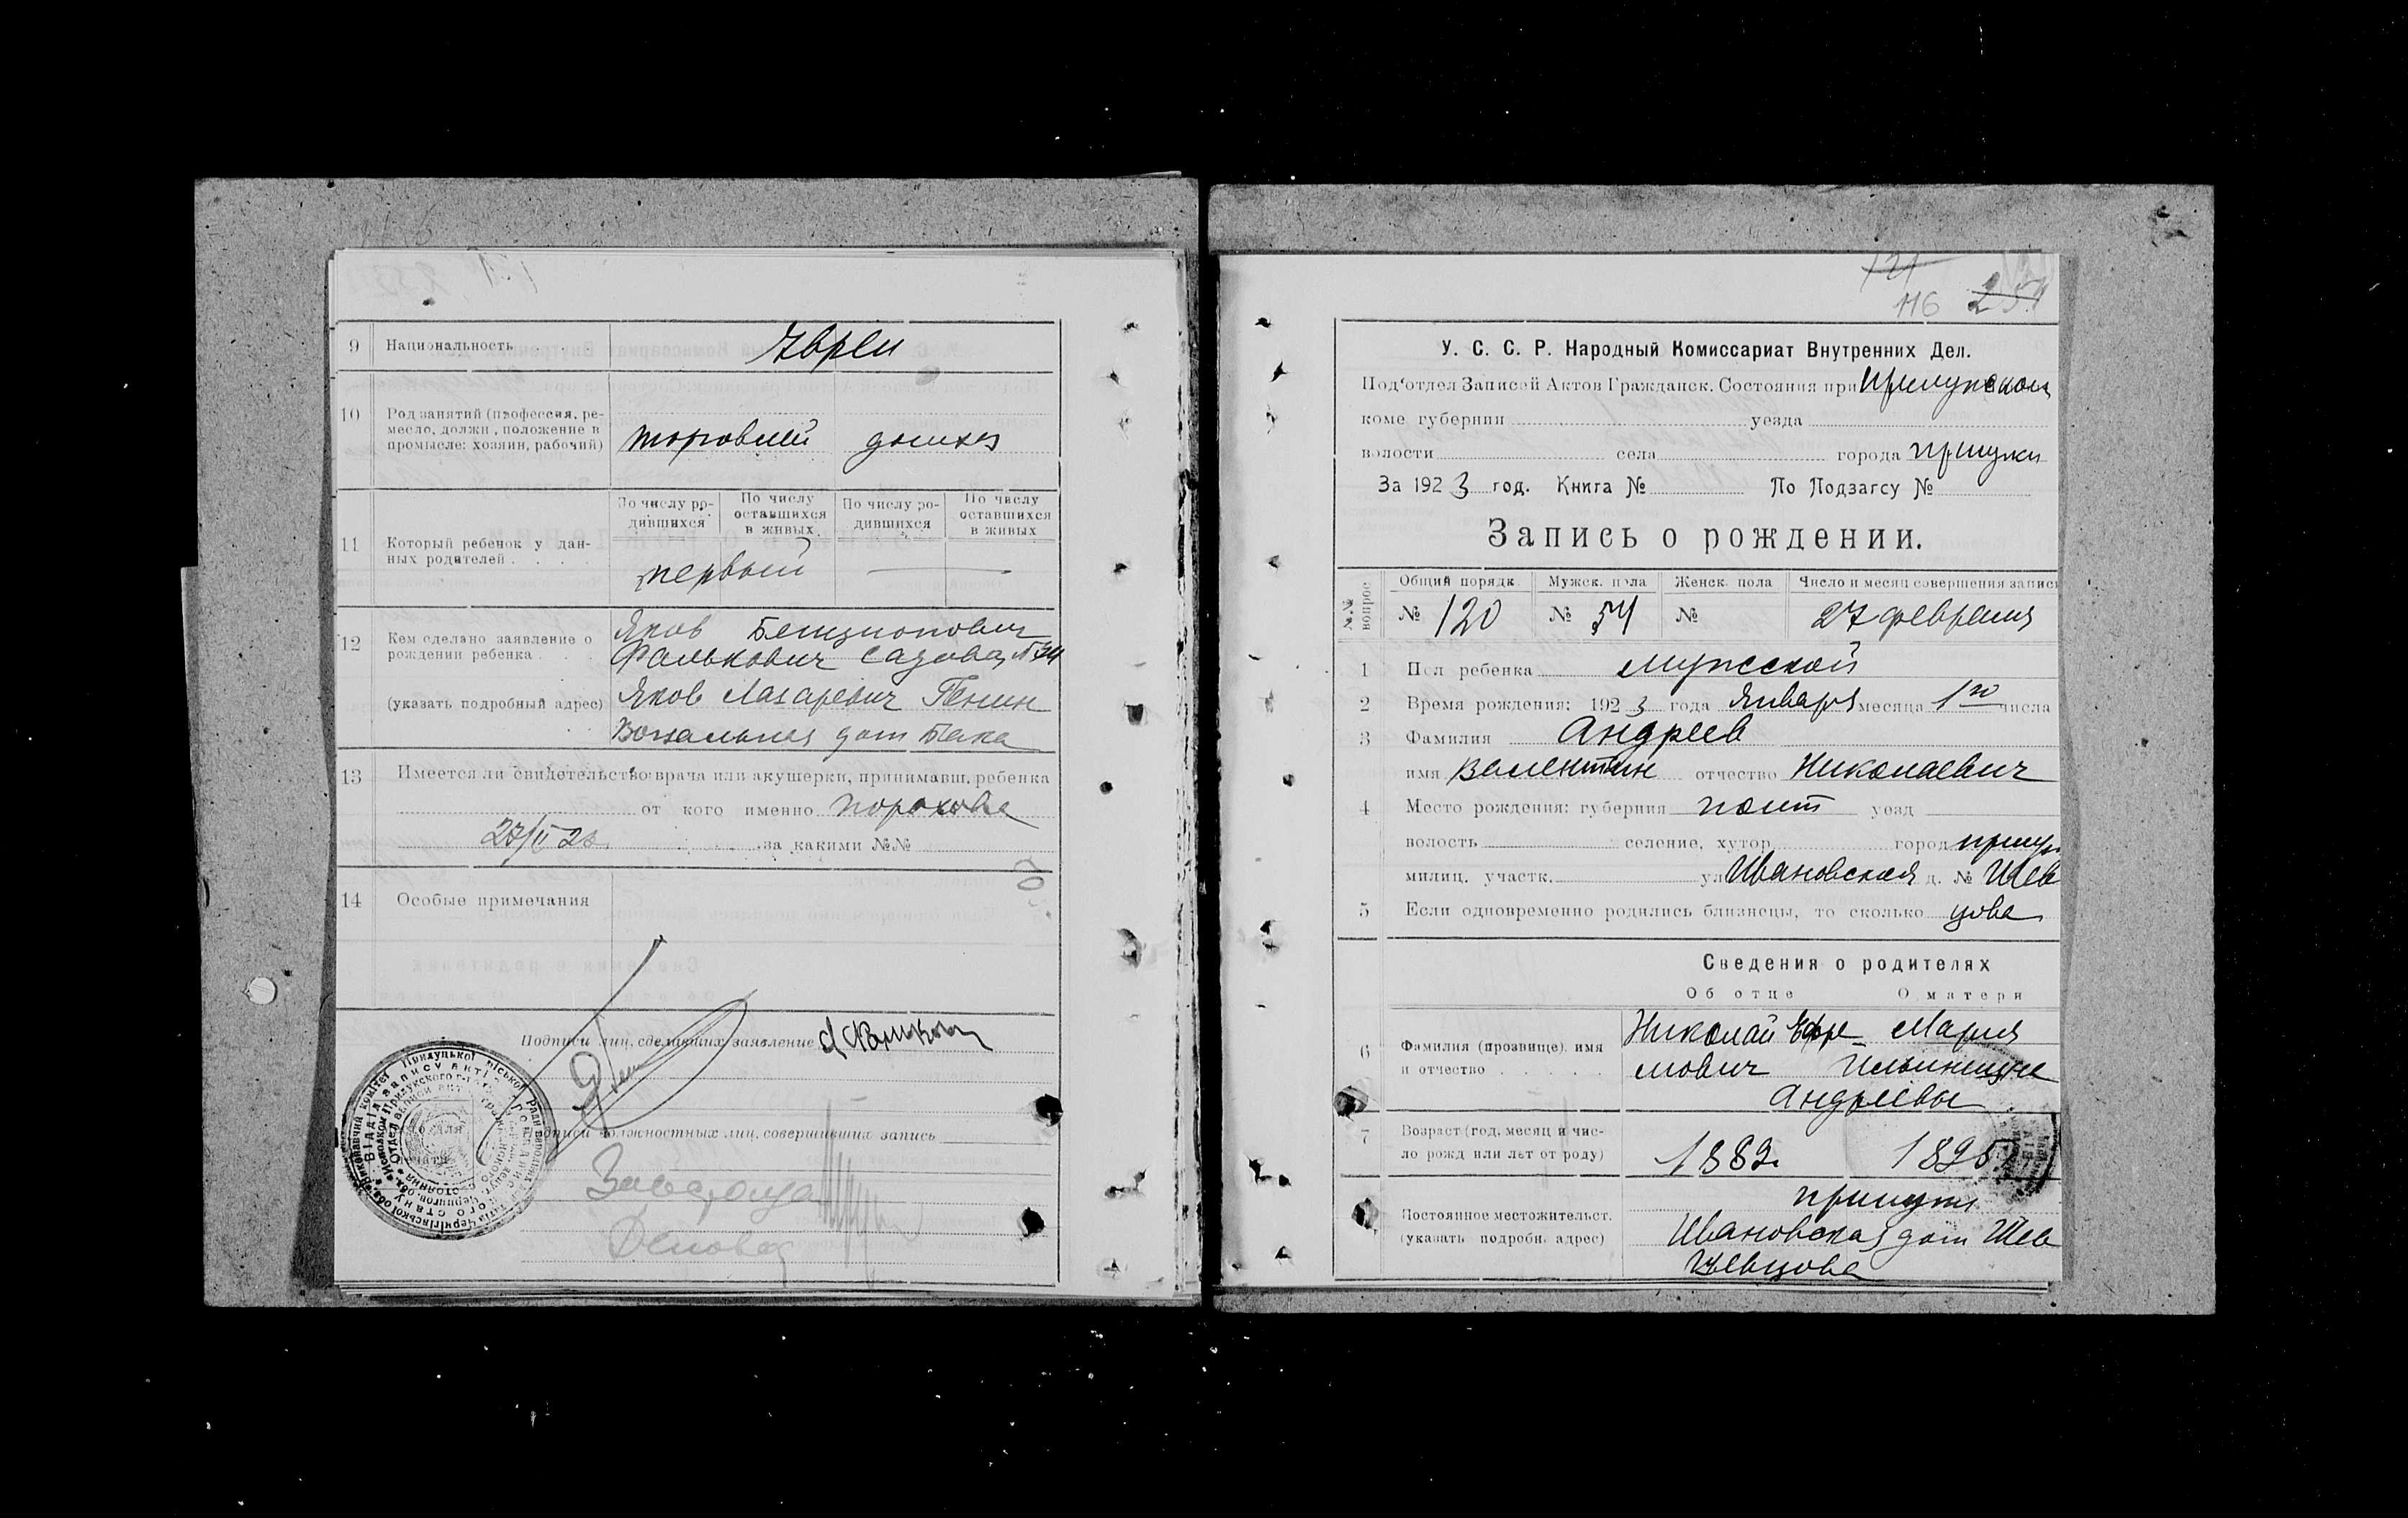 9 Национальность Евреи
10 Род занятий (профессия, ре-
месло, должн, положение в
промысле: хозяин, рабочий) торговый домхоз
По числу ро-
дившихся По числу
оставшихся
в живых По числу ро-
дившихся По числу
оставшихся
в живых
11 Который ребенок у дан-
ных родителей первый
12 Кем сделано заявление о
рождении ребенка
(указать подробный адрес)
Яков Бенционович
Фалькович Садовая № 34
Яков Лазаревич Генин
Вокзальная дом Бака
13 Имеется ли свидетельство врача или акушерки, принимавш. ребенка
от кого именно Порохова
27/II 23 за какими №№
14 Особые примечания
Подписи лиц, сделавших заявление
Подписи должностных лиц, совершивших запись
Заведующ
121
116 251
У. С. С. Р. Народный Комиссариат Внутренних Дел.
Под'отдел Записей Актов Гражданск. Состояния при Прилукском
коме губернии уезда
волости села города Прилуки
За 1923 год. Книга № По Подзагсу №
Запись о рождении.
№№ вопрос Общий порядк Мужск. пола Женск. пола Число и месяц совершения записи
№ 120 № 54 № 27 февраля
1 Пол ребенка мужской
2 Время рождения: 1923 года Января месяца 1го числа
3 Фамилия Андреев
имя Валентин отчество Николаевич
4 Место рождения: губерния Полт уезд
волость селение, хутор город Прилук
милиц. участк. ул Ивановская д. № Шев
5 Если одновременно родились близнецы, то сколько цова
Сведения о родителях
Об отце О матери
6 Фамилия (прозвище), имя
и отчество
Николай Ефре Мария
мович Ильинишна
Андреевы
7 Возраст (год, месяц и чис-
ло рожд или лет от роду) 1882 1895
Постоянное местожительст.
(указать подробн. адрес)
Прилуки
Ивановская дом Шев